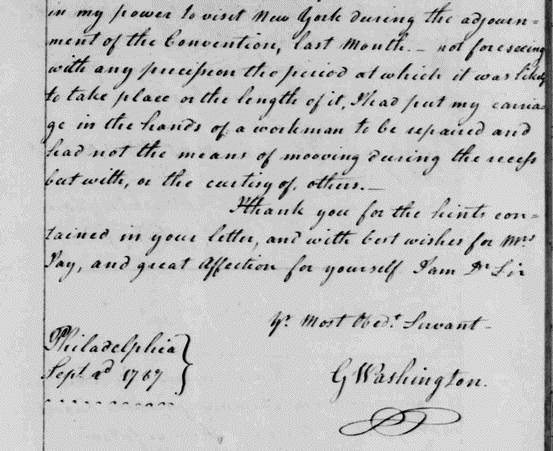 in my power to visit New York during the adjourn=
ment of the Convention, last Month.– not foreseeing
with any precision the period at which it was likely
to take place or the length of it, I had put my carria=
ge in the hands of a workman to be repaired and
had not the means of mooving during the recess
but with, or the curtisy of, others.–
I thank you for the hints con=
tained in your letter, and with best wishes for Mrs
Jay, and great Affection for yourself I am Dr Sir
Yr Most Obedt Servant–
Philadelphia
Sept 2d 1787
G Washington.